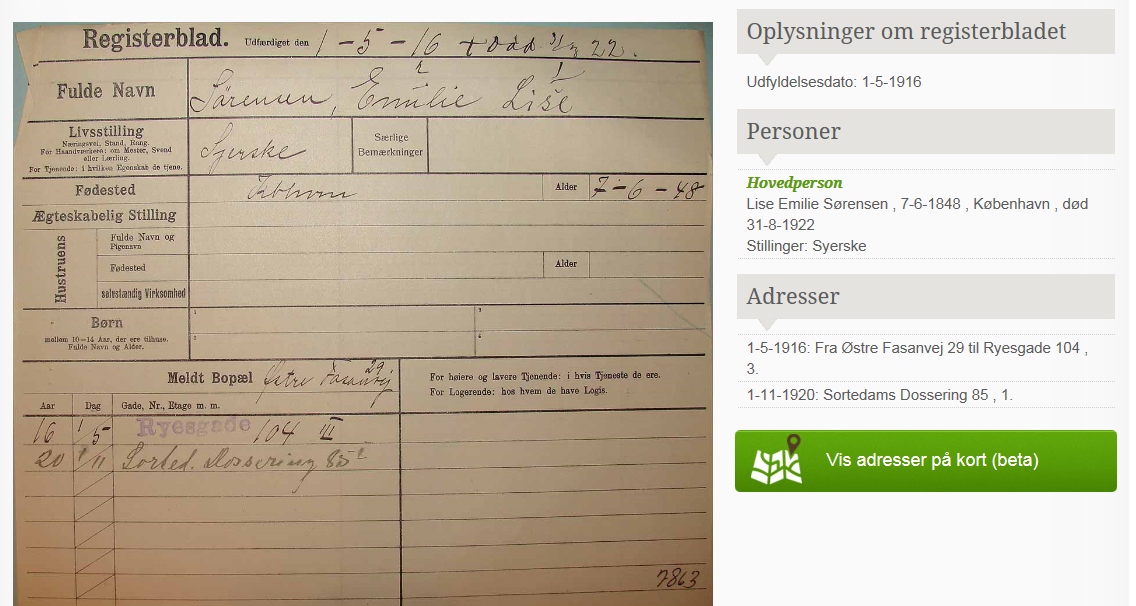 Registerblad. Udfærdiget den 1-5-16 + Död 31/8 22.
2 1
Fulde Navn Sörensen, Emilie Lise
Livsstilling
Næringsvei, Stand, Rang.
For Haandværkere: om Mester, Svend
eller Lærling.
For Tjenende: i hvilken Egenskab de tjene.
Syerske
Særlige
Bemærkninger
Fødested Kbhvn Alder 7-6-48
Ægteskabelig Stilling
Hustruens
Fulde Navn og
Pigenavn
Fødested Alder
selvstændig Virksomhed
Børn
mellem 10-14 Aar, der ere tilhuse.
Fulde Navn og Alder.
1 3
2 4
Meldt Bopæl Østre Fasanvej 29
For høiere og lavere Tjenende: i hvis Tjeneste de ere.
For Logerende: hos hvem de have Logis.
Aar Dag Gade, Nr., Etage m. m.
16 1/5 Ryesgade 104 III
20 1/11 Sorted. Dossering 85 1
7863
Oplysninger om registerbladet
Udfyldelsesdato: 1-5-1916
Personer
Hovedperson
Lise Emilie Sørensen , 7-6-1848 , København , død
31-8-1922
Stillinger: Syerske
Adresser
1-5-1916: Fra Østre Fasanvej 29 til Ryesgade 104 ,
3.
1-11-1920: Sortedams Dossering 85 , 1.
Vis adresser på kort (beta)